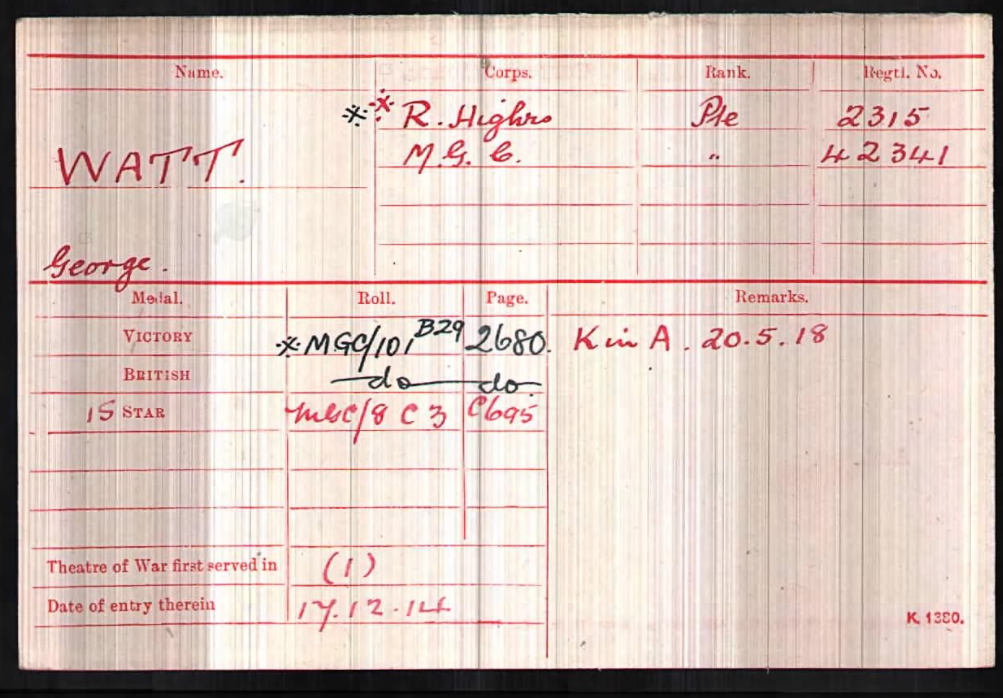 Name. Corps. Rank. Regtl. No.
** R. Highrs Pte 2315
WATT. M.G.C. " 42341
George.
Medal. Roll. Page. Remarks.
VICTORY *MGC/101 B29 2680. K in A. 20.5.18
BRITISH do do
15 STAR MGC/8 C 3 C695
Theatre of War first served in (1)
Date of entry therein 17.12.14
K. 1380.